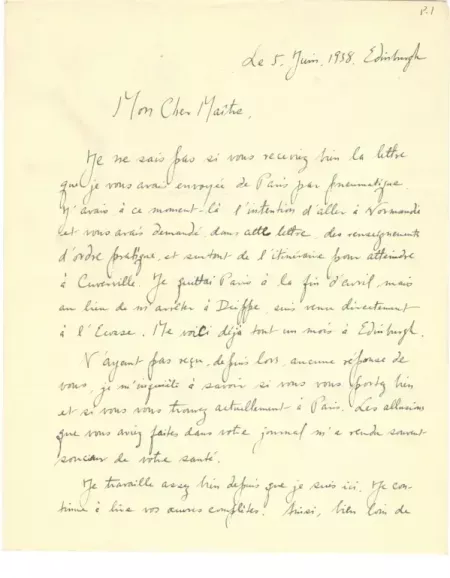 P.1
Le 5. Juin. 1938. Edinburgh
Mon Cher Maître,
Je ne sais pas si vous receviez bien la lettre
que je vous avais envoyée de Paris par pneumatique.
J'avais à ce moment-là l'intention d'aller à Normandie
et vous avais demandé, dans cette lettre, des renseignements
d'ordre pratique, et surtout de l'itinéraire pour atteindre
à Cuverville. Je quittai Paris à la fin d'avril, mais
au lieu de m'arrêter à Dieppe, suis venu directement
à l'Ecosse. Me voici déjà tout un mois à Edinburgh.
N'ayant pas reçu, depuis lors, aucune réponse de
vous, je m'inquiète à savoir si vous vous portez bien
et si vous vous trouvez actuellement à Paris. Les allusions
que vous aviez faites dans votre journal m'a rendu souvent
soucieux de votre santé.
Je travaille assez bien depuis que je suis ici. Je con-
tinue à lire vos œuvres complètes. Ainsi, bien loin de